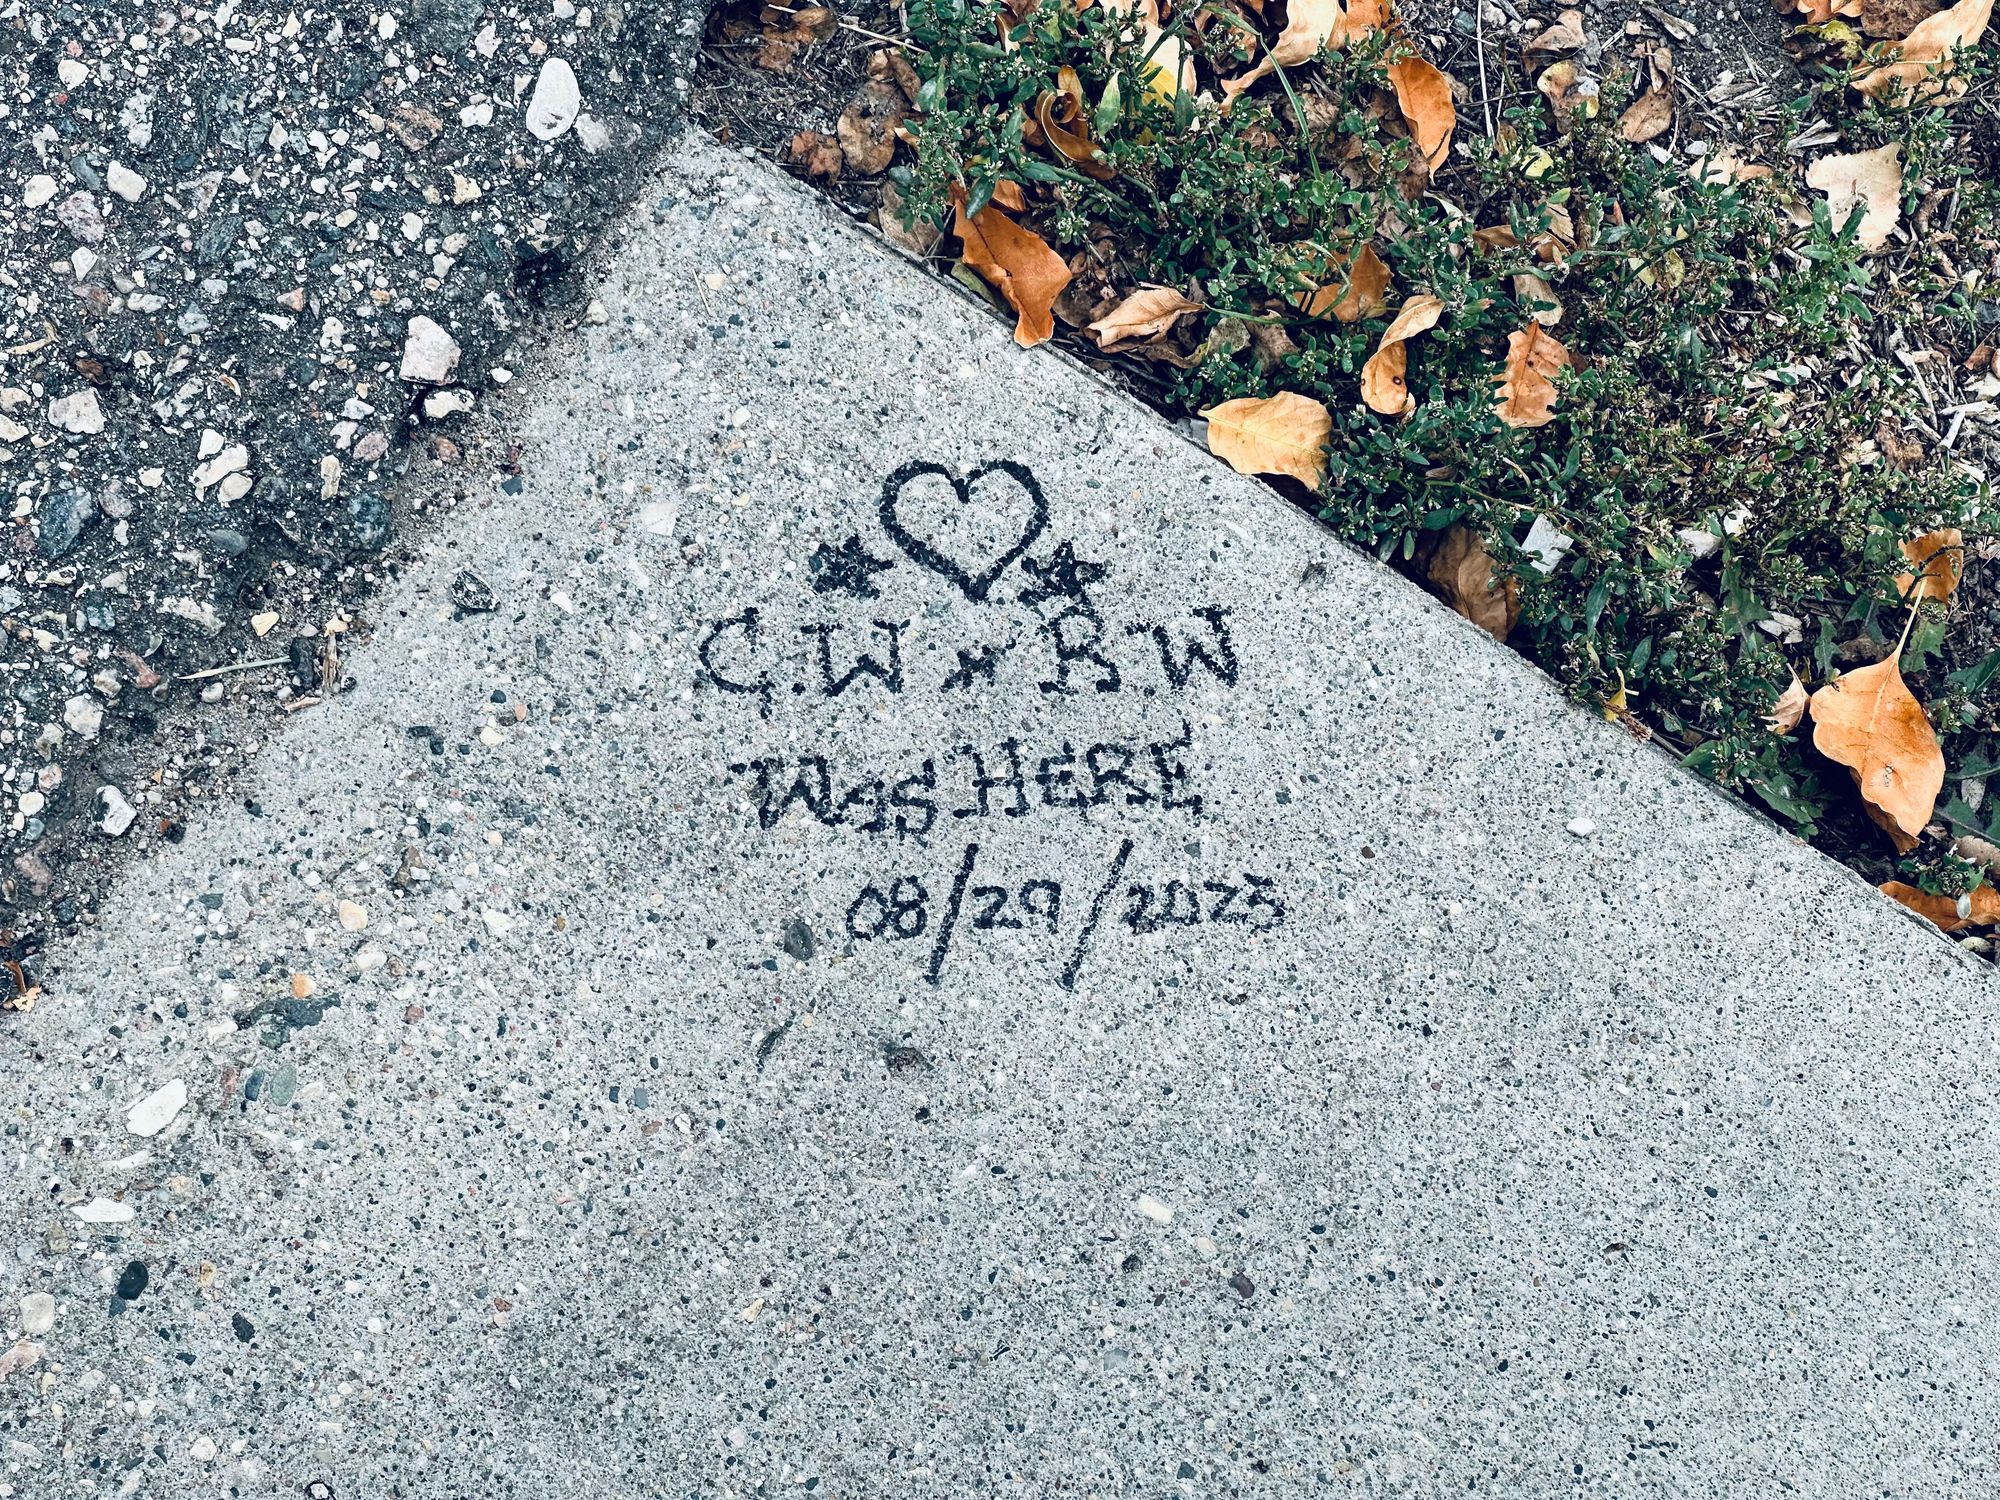 G.W ★ B.W
WAS HERE
08/29/2023